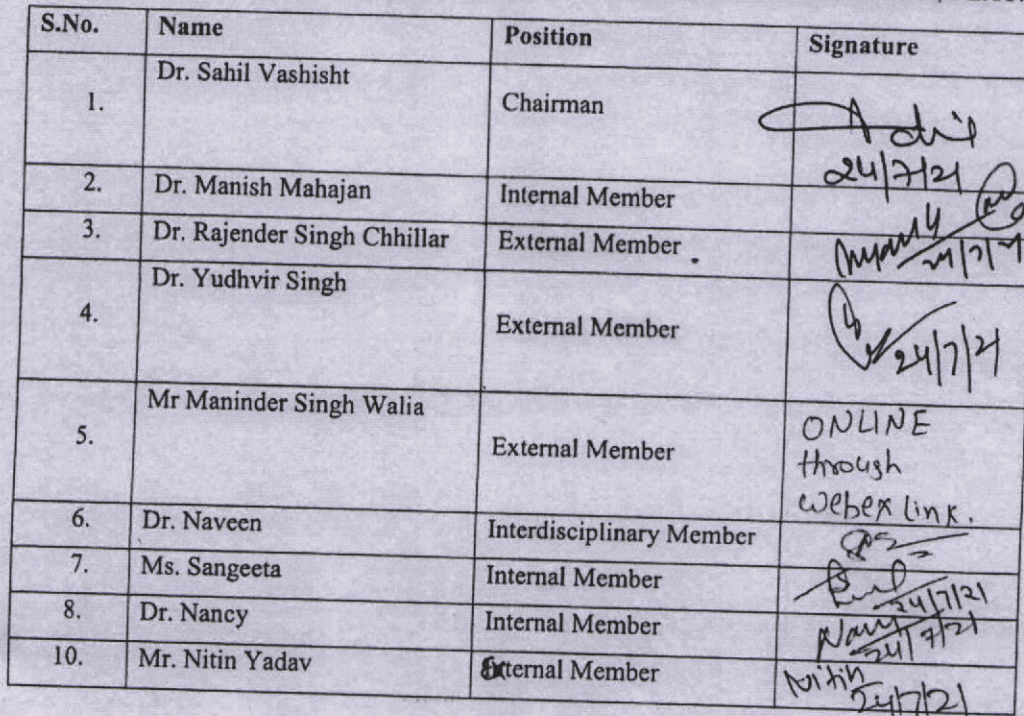 S.No. Name Position Signature
1. Dr. Sahil Vashisht Chairman
24/7/21
2. Dr. Manish Mahajan Internal Member
3. Dr. Rajender Singh Chhillar External Member
4. Dr. Yudhvir Singh External Member 24/7/21
5. Mr Maninder Singh Walia External Member ONLINE
through
webex link.
6. Dr. Naveen Interdisciplinary Member
7. Ms. Sangeeta Internal Member 24/7/21
8. Dr. Nancy Internal Member 24/7/21
10. Mr. Nitin Yadav External Member Nitin
24/7/21